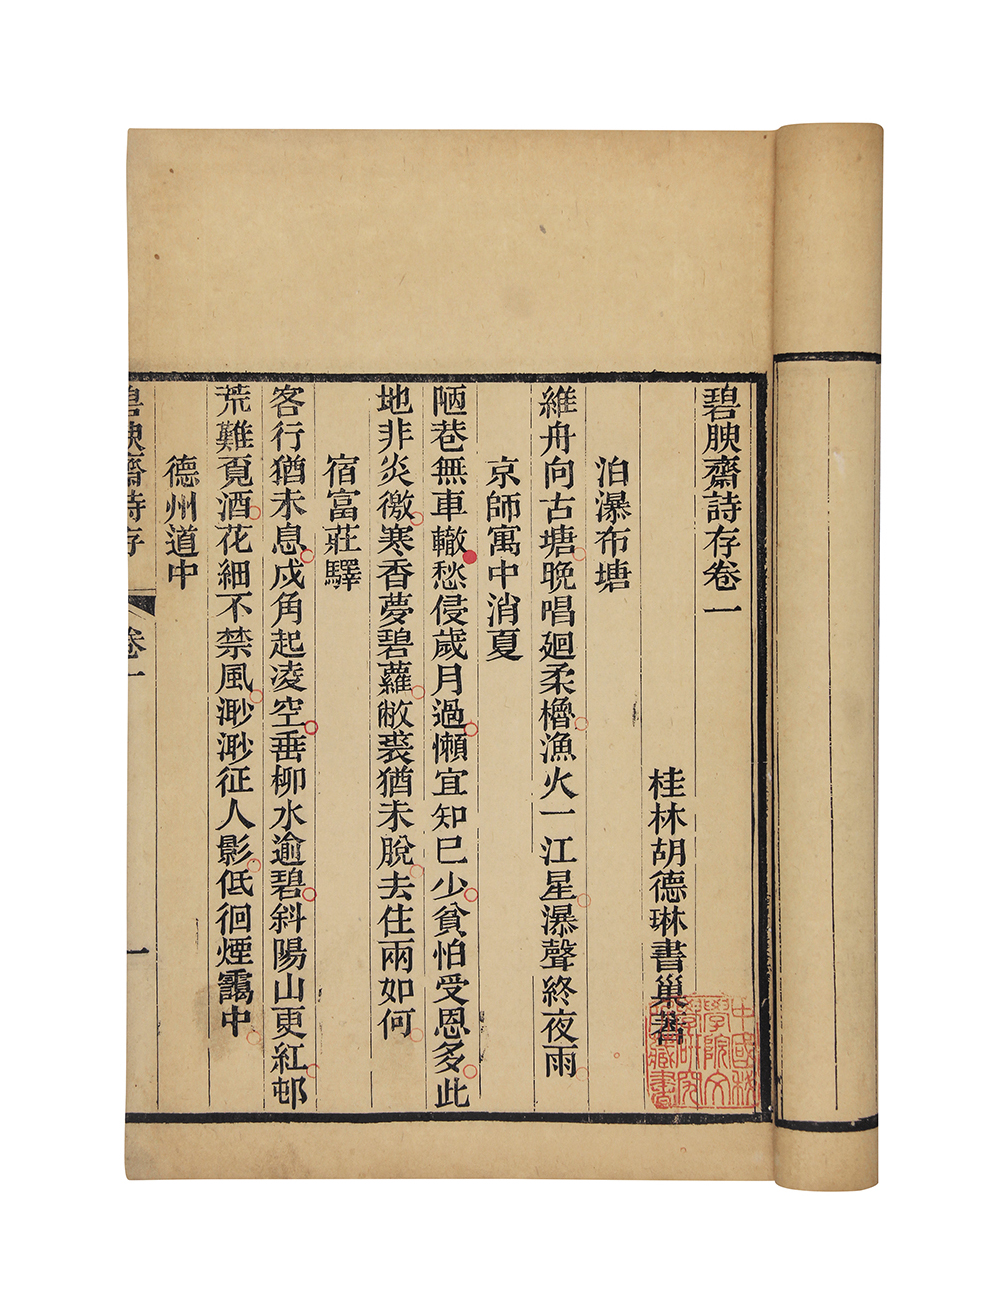 碧腴齋詩存卷一
桂林胡德琳書巢著
泊瀑布塘
維舟向古塘晚唱廻柔櫓漁火一江星瀑聲終夜雨
京師寓中消夏
陋巷無車轍愁侵歲月過懶宜知已少貧怕受恩多此
地非炎徼寒香夢碧蘿敝裘猶未脫去住兩如何
宿富莊驛
客行猶未息戍角起凌空垂柳水逾碧斜陽山更紅邨
荒難覓酒花細不禁風渺渺征人影低徊煙靄中
德州道中
碧腴齋詩存
卷一
一
中國科
學院文
學研究
藏書